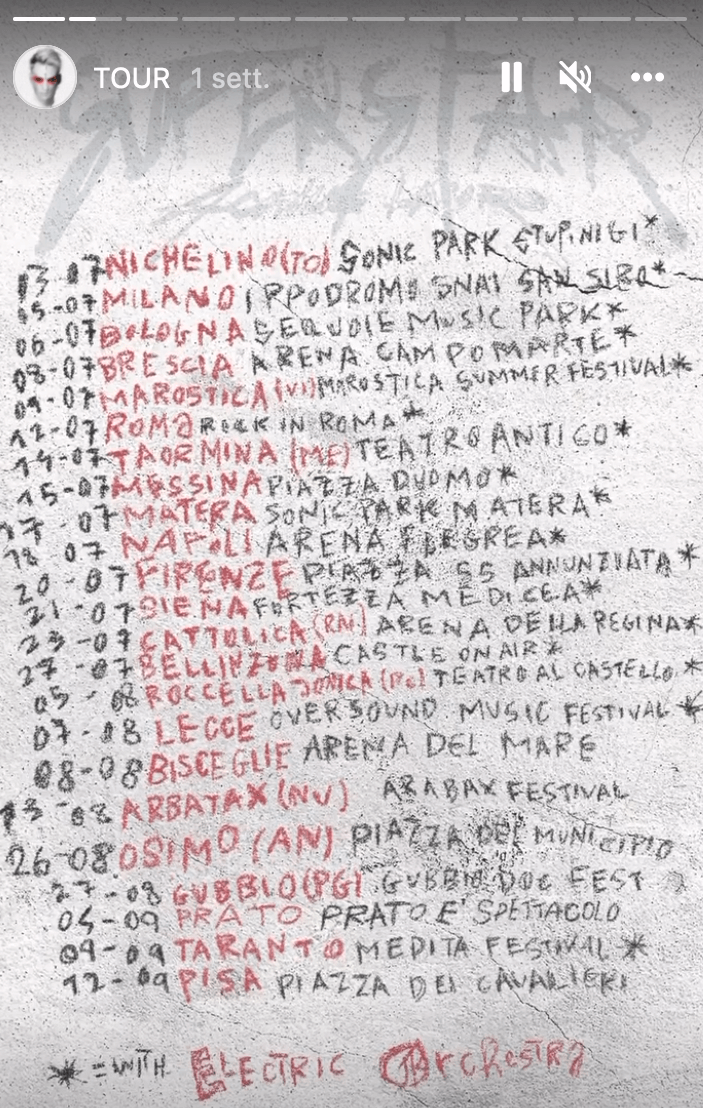 TOUR 1 sett.
SUPERSTAR
13-07 NICHELINO (TO) SONIC PARK STUPINIGI*
05-07 MILANO IPPODROMO SNAI SAN SIRO*
06-07 BOLOGNA SEQUOIE MUSIC PARK*
08-07 BRESCIA ARENA CAMPO MARTE*
09-07 MAROSTICA (VI) MAROSTICA SUMMER FESTIVAL*
12-07 ROMA ROCK IN ROMA*
14-07 TAORMINA (ME) TEATRO ANTICO*
15-07 MESSINA PIAZZA DUOMO*
17-07 MATERA SONIC PARK MATERA*
18-07 NAPOLI ARENA FLEGREA*
20-07 FIRENZE PIAZZA SS ANNUNZIATA*
21-07 SIENA FORTEZZA MEDICEA*
23-07 CATTOLICA (RN) ARENA DELLA REGINA*
27-07 BELLINZONA CASTLE ON AIR*
05-08 ROCCELLA JONICA (RC) TEATRO AL CASTELLO*
07-08 LECCE OVERSOUND MUSIC FESTIVAL*
08-08 BISCEGLIE ARENA DEL MARE
13-08 ARBATAX (NU) ARABAX FESTIVAL
26-08 OSIMO (AN) PIAZZA DEL MUNICIPIO
27-08 GUBBIO (PG) GUBBIO DOC FEST
04-09 PRATO PRATO E' SPETTACOLO
09-09 TARANTO MEDITA FESTIVAL*
12-09 PISA PIAZZA DEI CAVALIERI
* = WITH ELECTRIC Orchestra